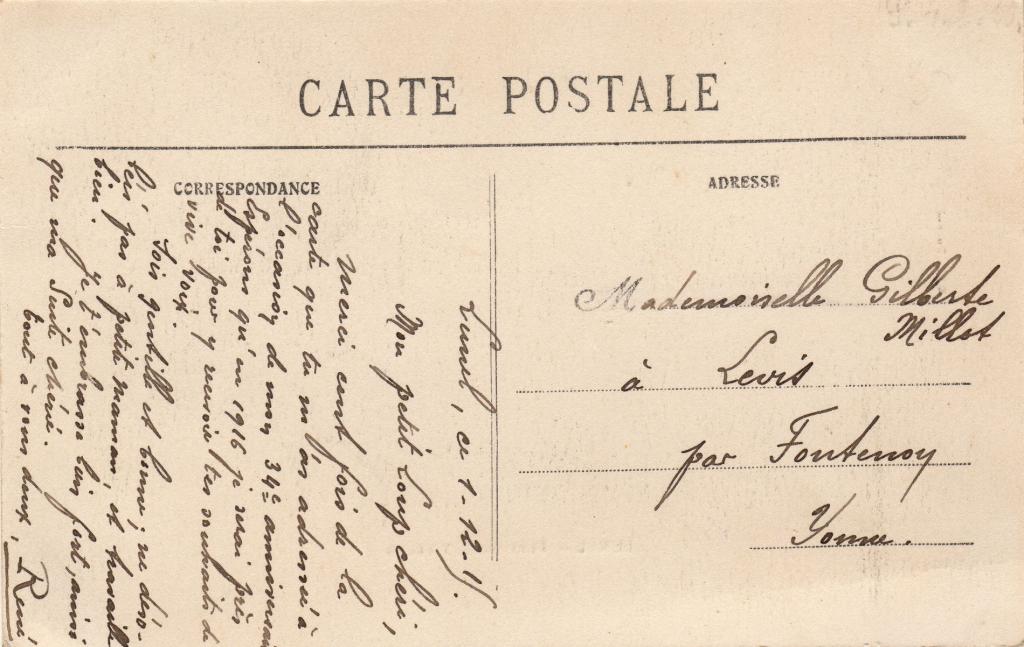 CARTE POSTALE
CORRESPONDANCE
ADRESSE
Lunel, ce 1-12-15.
Mon petit Loup chéri,
Merci cent fois de la
carte que tu m'as adressée à
l'occasion de mon 34e anniversaire
Espérons qu'en 1916 je serai près
de toi pour y recevoir tes souhaits de
vive voix.
Sois gentille et bonne; ne déso-
béis pas à petite maman, et travaille
bien. Je t'embrasse bien fort, ainsi
que ma Suite chérie.
tout à vous deux, René
Mademoiselle Gilberte
Millot
à Levis
par Fontenoy
Yonne.